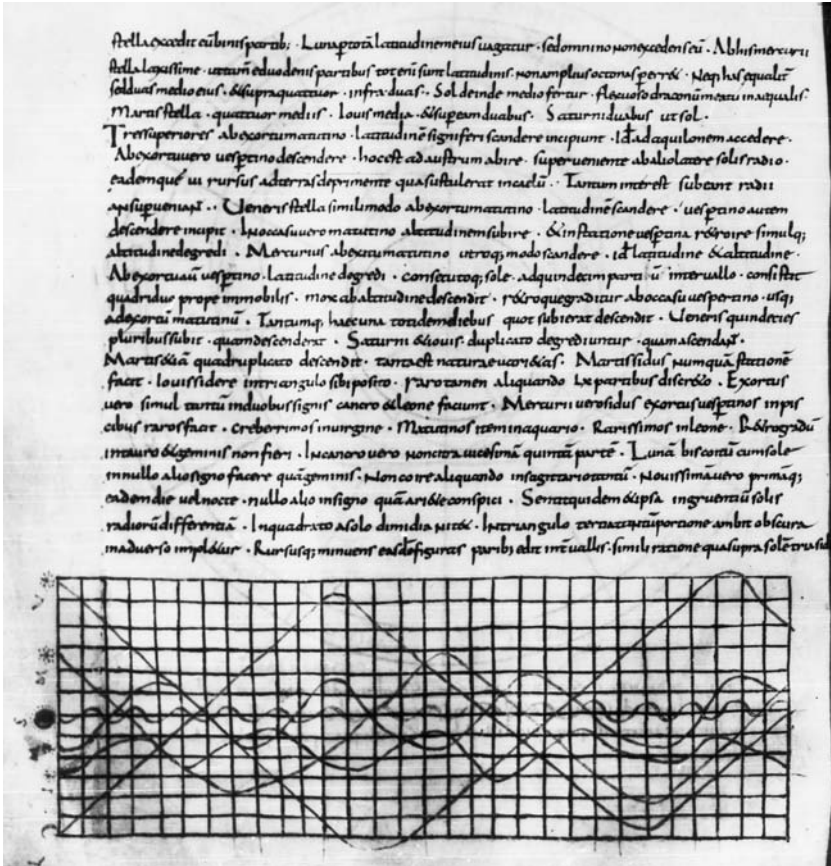 stella excedit eū binis partib; · Luna ꝑ totā latitudinem eius uagatur · sed omnino non excedens eū · Ab his mercurii
stella laxissime · ut tam̄ e duodenis partibus tot enī sunt latitudinis · non amplius octonas perr& · Neq; has equalit̄
sed duas medio eius · & supra quattuor · infra duas · Sol deinde medio fertur · flexuoso draconū meatu inaequalis·
Martis stella · quattuor mediis · Iouis media · & sup eam duabus · Saturni duabus ut sol ·
Tres superiores ab exortu matutino · latitudinē signiferi scandere incipiunt · id̄ ad aquilonem accedere ·
Ab exortu uero uesꝑtino descendere · hoc est ad austrum abire · superueniente ab alio latere solis radio ·
eademque ui rursus ad terras deprimente qua sustulerat in caelū · Tantum interest subeant radii
an superueniant · Ueneris stella simili modo ab exortu matutino · latitudinē scandere · uesꝑtino autem
descendere incipit · In occasu uero matutino altitudinem subire · & in statione uesꝑtina r&roire simulq;
altitudine degredi · Mercurius ab exitu matutino utroq; modo scandere · id̄ latitudine & altitudine ·
Ab exortu aū uesꝑtino · latitudine degredi · consecutoq; sole · ad quindecim partiū interuallo · consistit
quadriduo prope immobilis · mox ab altitudine descendit · r&roque graditur ab occasu uespertino · usq;
ad exortū matutinū · Tantumq; haec una totidem diebus quot subierat descendit · Ueneris quindecies
pluribus subit · quam descenderat · Saturni & iouis · duplicato degrediuntur · quam ascendant ·
Martis &iā quadruplicato descendit · tanta est naturae uari&as · Martis sidus numquā stationē
facit · Iouis sidere in triangulo sibi posito · raro tamen aliquando lx partibus discr&o · Exortus
uero simul tantū in duobus signis cancro & leone faciunt · Mercurii uero sidus exortus uesꝑtinos in pis
cibus raros facit · creberrimos in uirgine · Matutinos item in aquario · Rarissimos in leone · R&rogradū
in tauro & geminis non fieri · In cancro uero non citra uicesimā quintā partē · Lunā bis coitū cum sole
in nullo alio signo facere quā geminis · Non coire aliquando in sagittario tantū · Nouissimā uero primāq;
eadem die uel nocte · nullo alio in signo quā ari&e conspici · Sentit quidem & ipsa ingruentiū solis
radiorū differentiā · In quadrato a solo dimidia nit& · In triangulo portione ambit obscura
in aduerso impl&ur · Rursusq; minuens easdē figuras paribꝫ edit int̄uallis · simili ratione qua supra solē tria sid